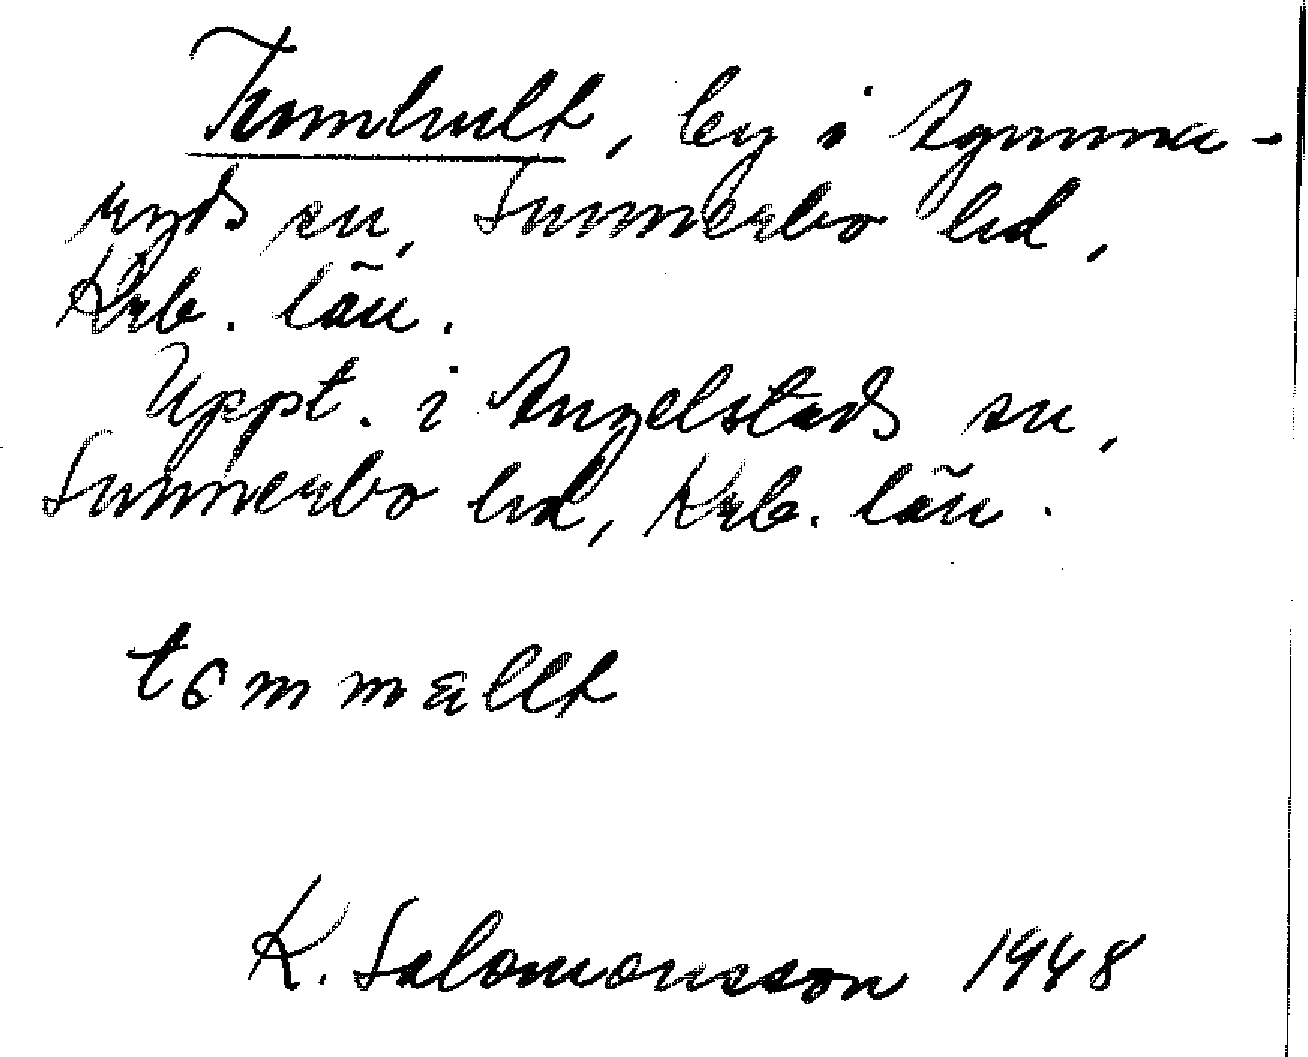 Tumhult, by i Agunna-
ryds sn, Sunnerbo hd,
Krb. län.
Uppt. i Angelstads sn,
Sunnerbo hd, Krb. län.
K. Salomonsson 1948